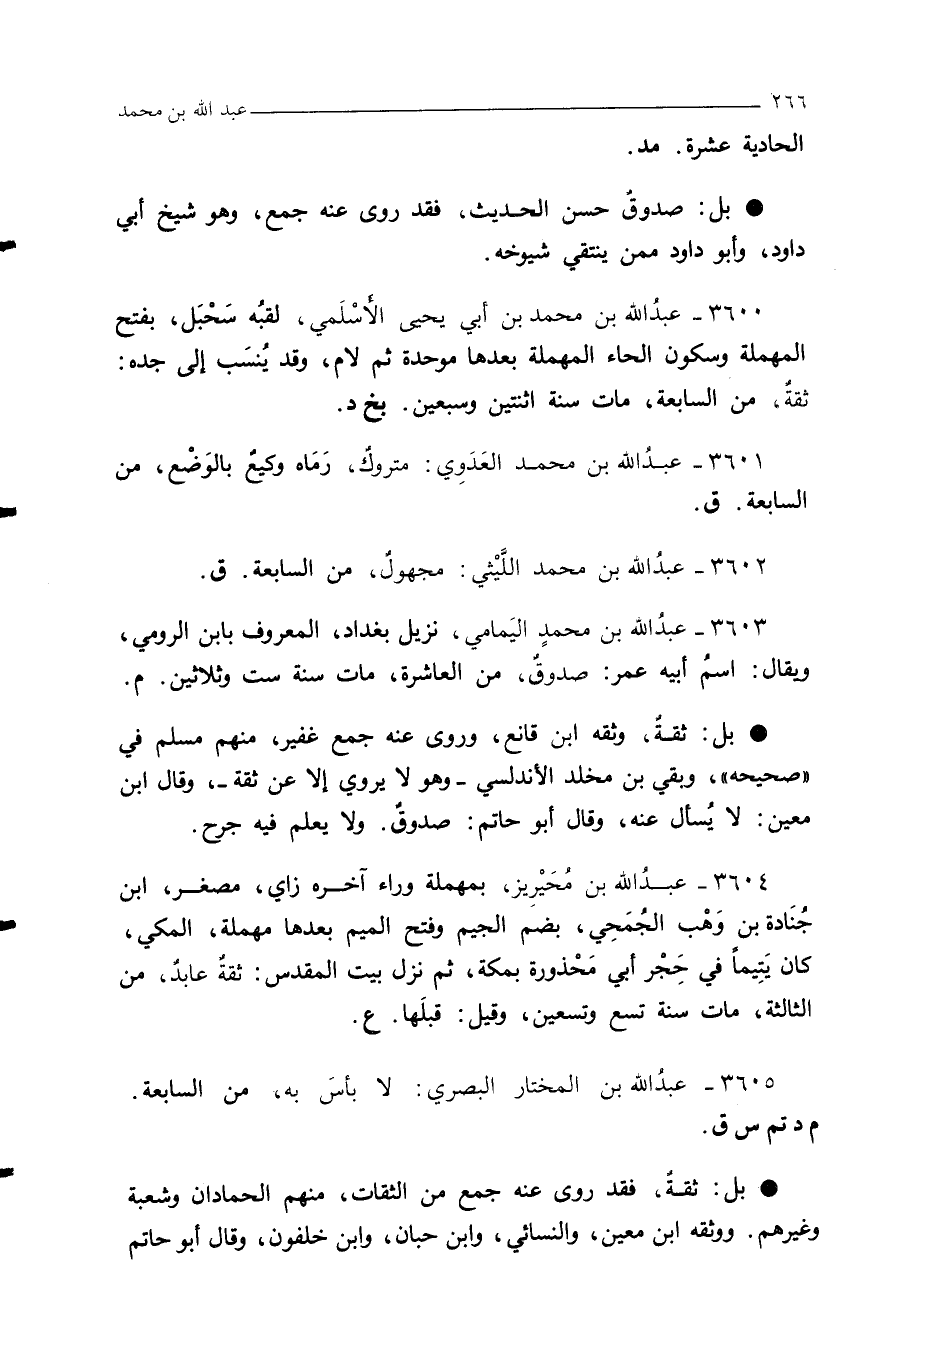 ٢٦٦ عبد الله بن محمد
الحادية عشرة. مد.
● بل: صدوقٌ حسن الحديث، فقد روى عنه جمع، وهو شيخ أبي
داود، وأبو داود ممن ينتقي شيوخه.
٣٦٠٠ ـ عبدُالله بن محمد بن أبي يحيى الأَسْلَمي، لقبُه سَحْبَل، بفتح
المهملة وسكون الحاء المهملة بعدها موحدة ثم لام، وقد يُنسَب إلى جده:
ثقةٌ، من السابعة، مات سنة اثنتين وسبعين. بخ د.
٣٦٠١ ـ عبدُالله بن محمد العَدَوِي: متروكٌ، رَمَاه وكيعٌ بالوَضْع، من
السابعة. ق.
٣٦٠٢ ـ عبدُالله بن محمد اللَّيْثي: مجهولٌ، من السابعة. ق.
٣٦٠٣ ـ عبدُالله بن محمدٍ اليَمامي، نزيل بغداد، المعروف بابن الرومي،
ويقال: اسمُ أبيه عمر: صدوقٌ، من العاشرة، مات سنة ست وثلاثين. م.
● بل: ثقةٌ، وثقه ابن قانع، وروى عنه جمع غفير، منهم مسلم في
«صحيحه»، وبقي بن مخلد الأندلسي ـ وهو لا يروي إلا عن ثقة ـ، وقال ابن
معين: لا يُسأل عنه، وقال أبو حاتم: صدوقٌ. ولا يعلم فيه جرح.
٣٦٠٤ ـ عبدُالله بن مُحَيْرِيز، بمهملة وراء آخره زاي، مصغر، ابن
جُنَادة بن وَهْب الجُمَحِي، بضم الجيم وفتح الميم بعدها مهملة، المكي،
كان يَتِيماً في حَجْر أبي مَحْذورة بمكة، ثم نزل بيت المقدس: ثقةٌ عابدٌ، من
الثالثة، مات سنة تسع وتسعين، وقيل: قبلَها. ع.
٣٦٠٥ ـ عبدُالله بن المختار البصري: لا بأسَ به، من السابعة.
م د تم س ق.
● بل: ثقةٌ، فقد روى عنه جمع من الثقات، منهم الحمادان وشعبة
وغيرهم. ووثقه ابن معين، والنسائي، وابن حبان، وابن خلفون، وقال أبو حاتم